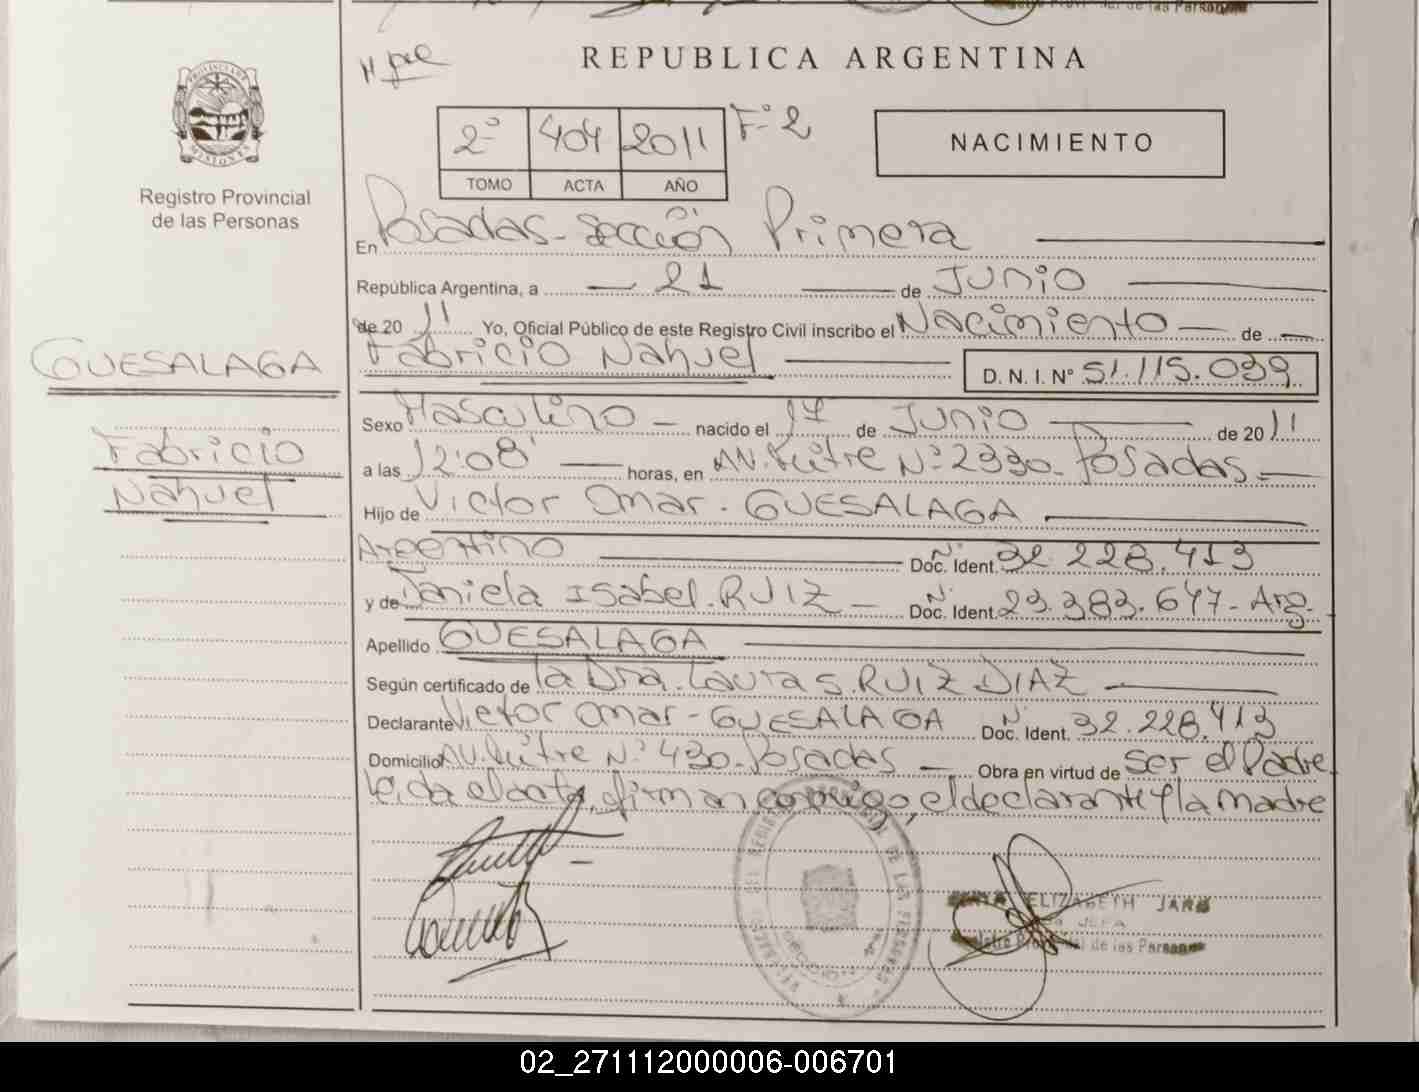 REPUBLICA ARGENTINA
2º 404 2011 Fº 2
TOMO ACTA AÑO
NACIMIENTO
PROVINCIA DE
MISIONES
Registro Provincial
de las Personas
En Posadas - Sección Primera
República Argentina, a 21 de Junio
de 20 11 Yo, Oficial Público de este Registro Civil inscribo el Nacimiento de
Fabricio Nahuel D. N. I. Nº 51.115.039
GUESALAGA
Fabricio
Nahuel
Sexo Masculino nacido el 17 de Junio de 20 11
a las 12:08' horas, en AV. Mitre Nº 2330 - Posadas
Hijo de Victor Omar - GUESALAGA
Argentino Doc. Ident. Nº 32.228.413
y de Daniela Isabel - RUIZ Doc. Ident. Nº 23.383.647 - Arg.
Apellido GUESALAGA
Según certificado de la Dra. Laura S. RUIZ DIAZ
Declarante Victor Omar - GUESALAGA Doc. Ident. Nº 32.228.413
Domicilio AV. Mitre Nº 430 - Posadas Obra en virtud de ser el Padre
Leida el acta, firman conmigo, el declarante y la madre
ELIZABETH JARA
JEFA
de las Personas
02_271112000006-006701